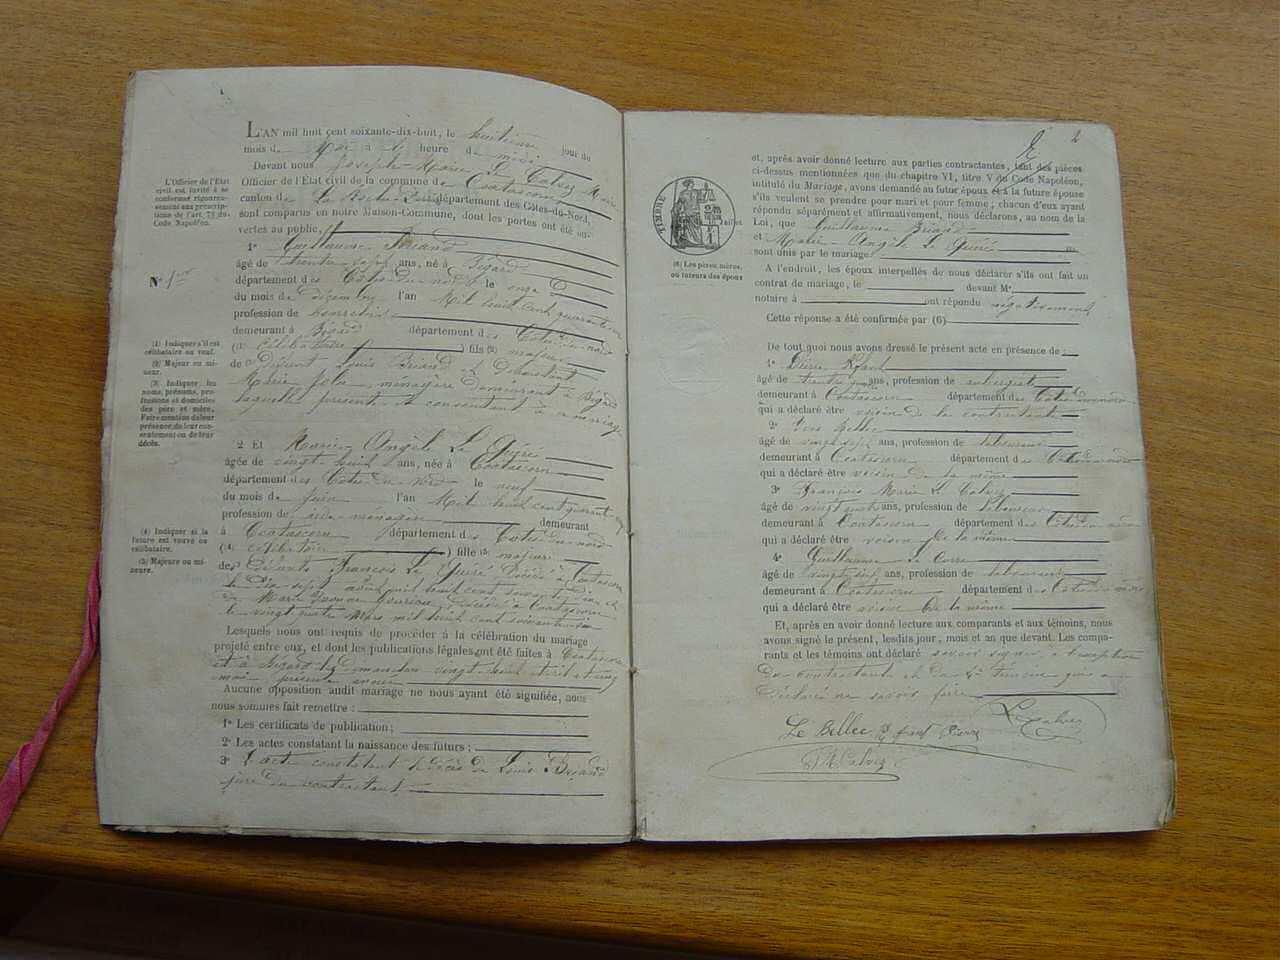 L'AN mil huit cent soixante-dix-huit, le huitième jour du
mois de Mai à heure de midi
Devant nous Joseph-Marie Le Calvez Maire
Officier de l'État civil de la commune de Coatascorn
canton de La Roche-Derrien département des Côtes-du-Nord,
sont comparus en notre Maison-Commune, dont les portes ont été ou-
vertes au public,
L'Officier de l'État
civil est invité à se
conformer rigoureu-
sement aux prescrip-
tions de l'art. 75 du
Code Napoléon.
1° Guillaume Briand
âgé de trente sept ans, né à Bégard
N° 1er
département des Côtes-du-nord le onze
du mois de décembre l'an Mil huit cent quarante
profession de
demeurant à Bégard département des Côtes-du-nord
(1) célibataire ) fils (2) majeur
de défunt Louis Briand et
Marie ménagère demeurant à Bégard
laquelle présente et consentant à ce mariage
(1) Indiquer s'il est
célibataire ou veuf.
(2) Majeur ou mi-
neur.
(3) Indiquer les
noms, prénoms, pro-
fessions et domiciles
des père et mère.
Faire mention de leur
présence, de leur con-
sentement ou de leur
décès.
2 Et Marie-Angèle Le Quéré
âgée de vingt huit ans, née à Coatascorn
département des Côtes-du-Nord le neuf
du mois de juin l'an Mil huit cent quarante
profession de aide-ménagère demeurant
à Coatascorn département des Côtes-du-nord
(4) célibataire ) fille (5) majeure
des défunts François Le Quéré décédé à Coatascorn
le dix sept août mil huit cent soixante et
de Marie Yvonne décédée à Coatascorn
le vingt quatre Mars mil huit cent soixante
(4) Indiquer si la
future est veuve ou
célibataire.
(5) Majeure ou mi-
neure.
Lesquels nous ont requis de procéder à la célébration du mariage
projeté entre eux, et dont les publications légales ont été faites à Coatascorn
et à Bégard les dimanches vingt huit avril et cinq
mai présente année
Aucune opposition audit mariage ne nous ayant été signifiée, nous
nous sommes fait remettre :
1° Les certificats de publication ;
2° Les actes constatant la naissance des futurs ;
3° L'acte constatant le décès de Louis Briand
père du contractant
2
et, après avoir donné lecture aux parties contractantes, tant des pièces
ci-dessus mentionnées que du chapitre VI, titre V du Code Napoléon,
intitulé du Mariage, avons demandé au futur époux et à la future épouse
s'ils veulent se prendre pour mari et pour femme ; chacun d'eux ayant
répondu séparément et affirmativement, nous déclarons, au nom de la
Loi, que Guillaume Briand
et Marie-Angèle Le Quéré
sont unis par le mariage.
TIMBRE
(6) Les pères, mères,
ou tuteurs des époux
A l'endroit, les époux interpellés de nous déclarer s'ils ont fait un
contrat de mariage, le devant Me
notaire à ont répondu négativement
Cette réponse a été confirmée par (6)
De tout quoi nous avons dressé le présent acte en présence de :
1° Pierre
âgé de trente ans, profession de aubergiste
demeurant à Coatascorn département des Côtes-du-nord
qui a déclaré être voisin de la contractante
2° Yves Bellec
âgé de vingt sept ans, profession de laboureur
demeurant à Coatascorn département des Côtes-du-nord
qui a déclaré être voisin de la même
3° François Marie Le Calvez
âgé de vingt ans, profession de laboureur
demeurant à Coatascorn département des Côtes-du-nord
qui a déclaré être voisin de la même
4° Guillaume Le Corre
âgé de vingt six ans, profession de laboureur
demeurant à Coatascorn département des Côtes-du-nord
qui a déclaré être voisin de la même
Et, après en avoir donné lecture aux comparants et aux témoins, nous
avons signé le présent, lesdits jour, mois et an que devant. Les compa-
rants et les témoins ont déclaré savoir signer à l'exception
des contractants et du 4e témoin qui ont
déclaré ne savoir faire
Le Calvez
Le Bellec Pierre
F M Calvez